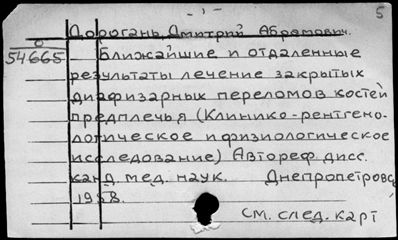 - 1 -
5
Дорогань, Дмитрий Абрамович.
О
54665
Ближайшие и отдаленные
результаты лечение закрытых
диафизарных переломов костей
предплечья (Клинико-рентгено-
логическое и физиологическое
исследование) Автореф дисс.
канд. мед. наук. Днепропетровс
1958.
См. след. карт